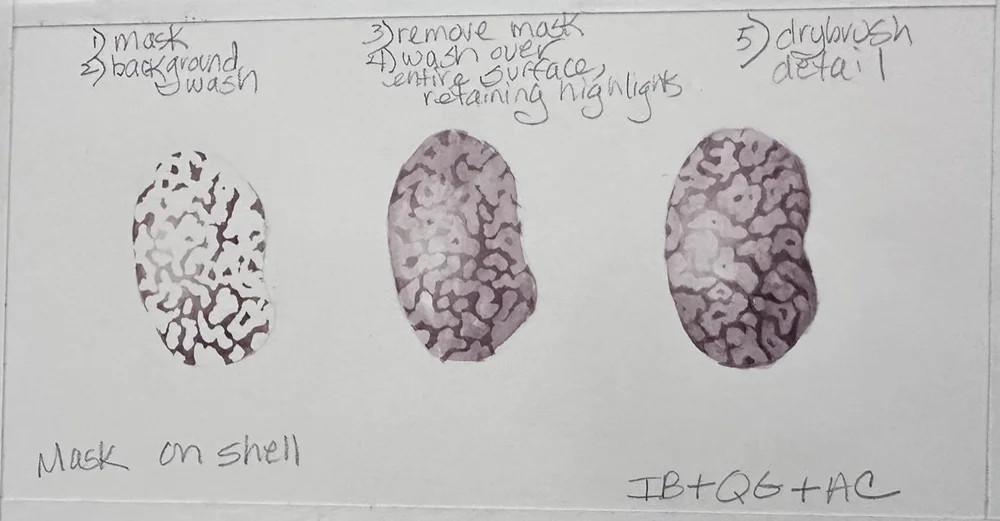 1) mask
2) background
wash
3) remove mask
4) wash over
entire surface,
retaining highlights
5) drybrush
detail
Mask on shell
IB+QG+AC